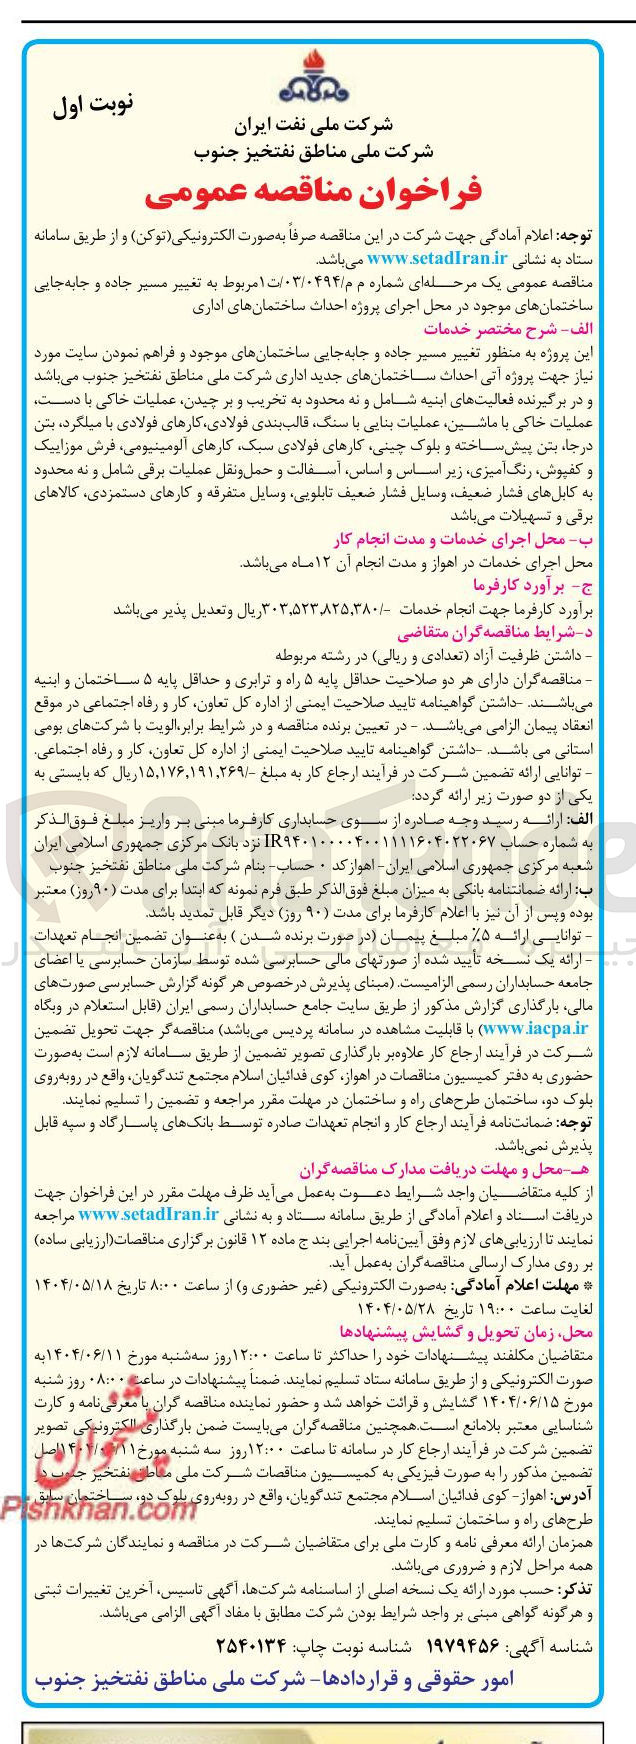 نوبت اول
شرکت ملی نفت ایران
شرکت ملی مناطق نفتخیز جنوب
فراخوان مناقصه عمومی
توجه: اعلام آمادگی جهت شرکت در این مناقصه صرفاً به‌صورت الکترونیکی(توکن) و از طریق سامانه
ستاد به نشانی www.setadIran.ir می‌باشد.
مناقصه عمومی یک مرحله‌ای شماره م م/۰۳/۰۴۹۴/ت۱مربوط به تغییر مسیر جاده و جابه‌جایی
ساختمان‌های موجود در محل اجرای پروژه احداث ساختمان‌های اداری
الف- شرح مختصر خدمات
این پروژه به منظور تغییر مسیر جاده و جابه‌جایی ساختمان‌های موجود و فراهم نمودن سایت مورد
نیاز جهت پروژه آتی احداث ساختمان‌های جدید اداری شرکت ملی مناطق نفتخیز جنوب می‌باشد
و در برگیرنده فعالیت‌های ابنیه شامل و نه محدود به تخریب و بر چیدن، عملیات خاکی با دست،
عملیات خاکی با ماشین، عملیات بنایی با سنگ، قالب‌بندی فولادی،کارهای فولادی با میلگرد، بتن
درجا، بتن پیش‌ساخته و بلوک چینی، کارهای فولادی سبک، کارهای آلومینیومی، فرش موزاییک
و کفپوش، رنگ‌آمیزی، زیر اساس و اساس، آسفالت و حمل‌ونقل عملیات برقی شامل و نه محدود
به کابل‌های فشار ضعیف، وسایل فشار ضعیف تابلویی، وسایل متفرقه و کارهای دستمزدی، کالاهای
برقی و تسهیلات می‌باشد
ب- محل اجرای خدمات و مدت انجام کار
محل اجرای خدمات در اهواز و مدت انجام آن ۱۲ماه می‌باشد.
ج- برآورد کارفرما
برآورد کارفرما جهت انجام خدمات -/۳۰۳,۵۲۳,۸۲۵,۳۸۰ریال وتعدیل پذیر می‌باشد
د-شرایط مناقصه‌گران متقاضی
- داشتن ظرفیت آزاد (تعدادی و ریالی) در رشته مربوطه
- مناقصه‌گران دارای هر دو صلاحیت حداقل پایه ۵ راه و ترابری و حداقل پایه ۵ ساختمان و ابنیه
می‌باشند. -داشتن گواهینامه تایید صلاحیت ایمنی از اداره کل تعاون، کار و رفاه اجتماعی در موقع
انعقاد پیمان الزامی می‌باشد. - در تعیین برنده مناقصه و در شرایط برابر،الویت با شرکت‌های بومی
استانی می باشد. -داشتن گواهینامه تایید صلاحیت ایمنی از اداره کل تعاون، کار و رفاه اجتماعی.
- توانایی ارائه تضمین شرکت در فرآیند ارجاع کار به مبلغ -/۱۵,۱۷۶,۱۹۱,۲۶۹ریال که بایستی به
یکی از دو صورت زیر ارائه گردد:
الف: ارائه رسید وجه صادره از سوی حسابداری کارفرما مبنی بر واریز مبلغ فوق‌الذکر
به شماره حساب IR۹۴۰۱۰۰۰۰۴۰۰۱۱۱۱۶۰۴۰۲۲۰۶۷ نزد بانک مرکزی جمهوری اسلامی ایران
شعبه مرکزی جمهوری اسلامی ایران- اهوازکد ۰ حساب- بنام شرکت ملی مناطق نفتخیز جنوب
ب: ارائه ضمانتنامه بانکی به میزان مبلغ فوق‌الذکر طبق فرم نمونه که ابتدا برای مدت (۹۰روز) معتبر
بوده وپس از آن نیز با اعلام کارفرما برای مدت (۹۰ روز) دیگر قابل تمدید باشد.
- توانایی ارائه ۵٪ مبلغ پیمان (در صورت برنده شدن ) به‌عنوان تضمین انجام تعهدات
- ارائه یک نسخه تأیید شده از صورتهای مالی حسابرسی شده توسط سازمان حسابرسی یا اعضای
جامعه حسابداران رسمی الزامیست. (مبنای پذیرش درخصوص هر گونه گزارش حسابرسی صورت‌های
مالی، بارگذاری گزارش مذکور از طریق سایت جامع حسابداران رسمی ایران (قابل استعلام در وبگاه
www.iacpa.ir) با قابلیت مشاهده در سامانه پردیس می‌باشد) مناقصه‌گر جهت تحویل تضمین
شرکت در فرآیند ارجاع کار علاوه‌بر بارگذاری تصویر تضمین از طریق سامانه لازم است به‌صورت
حضوری به دفتر کمیسیون مناقصات در اهواز، کوی فدائیان اسلام مجتمع تندگویان، واقع در روبه‌روی
بلوک دو، ساختمان طرح‌های راه و ساختمان در مهلت مقرر مراجعه و تضمین را تسلیم نمایند.
توجه: ضمانت‌نامه فرآیند ارجاع کار و انجام تعهدات صادره توسط بانک‌های پاسارگاد و سپه قابل
پذیرش نمی‌باشد.
هـ-محل و مهلت دریافت مدارک مناقصه‌گران
از کلیه متقاضیان واجد شرایط دعوت به‌عمل می‌آید ظرف مهلت مقرر در این فراخوان جهت
دریافت اسناد و اعلام آمادگی از طریق سامانه ستاد و به نشانی www.setadIran.ir مراجعه
نمایند تا ارزیابی‌های لازم وفق آیین‌نامه اجرایی بند ج ماده ۱۲ قانون برگزاری مناقصات(ارزیابی ساده)
بر روی مدارک ارسالی مناقصه‌گران به‌عمل آید.
* مهلت اعلام آمادگی: به‌صورت الکترونیکی (غیر حضوری و) از ساعت ۸:۰۰ تاریخ ۱۴۰۴/۰۵/۱۸
لغایت ساعت ۱۹:۰۰ تاریخ ۱۴۰۴/۰۵/۲۸
محل، زمان تحویل و گشایش پیشنهادها
متقاضیان مکلفند پیشنهادات خود را حداکثر تا ساعت ۱۲:۰۰روز سه‌شنبه مورخ ۱۴۰۴/۰۶/۱۱به
صورت الکترونیکی و از طریق سامانه ستاد تسلیم نمایند. ضمناً پیشنهادات در ساعت ۰۸:۰۰ روز شنبه
مورخ ۱۴۰۴/۰۶/۱۵ گشایش و قرائت خواهد شد و حضور نماینده مناقصه گران با معرفی‌نامه و کارت
شناسایی معتبر بلامانع است.همچنین مناقصه‌گران می‌بایست ضمن بارگذاری الکترونیکی تصویر
تضمین شرکت در فرآیند ارجاع کار در سامانه تا ساعت ۱۲:۰۰روز سه شنبه مورخ۱۴۰۴/۰۶/۱۱اصل
تضمین مذکور را به صورت فیزیکی به کمیسیون مناقصات شرکت ملی مناطق نفتخیز جنوب در
آدرس: اهواز- کوی فدائیان اسلام مجتمع تندگویان، واقع در روبه‌روی بلوک دو، ساختمان سابق
طرح‌های راه و ساختمان تسلیم نمایند.
همزمان ارائه معرفی نامه و کارت ملی برای متقاضیان شرکت در مناقصه و نمایندگان شرکت‌ها در
همه مراحل لازم و ضروری می‌باشد.
تذکر: حسب مورد ارائه یک نسخه اصلی از اساسنامه شرکت‌ها، آگهی تاسیس، آخرین تغییرات ثبتی
و هرگونه گواهی مبنی بر واجد شرایط بودن شرکت مطابق با مفاد آگهی الزامی می‌باشد.
شناسه آگهی: ۱۹۷۹۴۵۶ شناسه نوبت چاپ: ۲۵۴۰۱۳۴
امور حقوقی و قراردادها- شرکت ملی مناطق نفتخیز جنوب
پیشخوان
Pishkhan.com